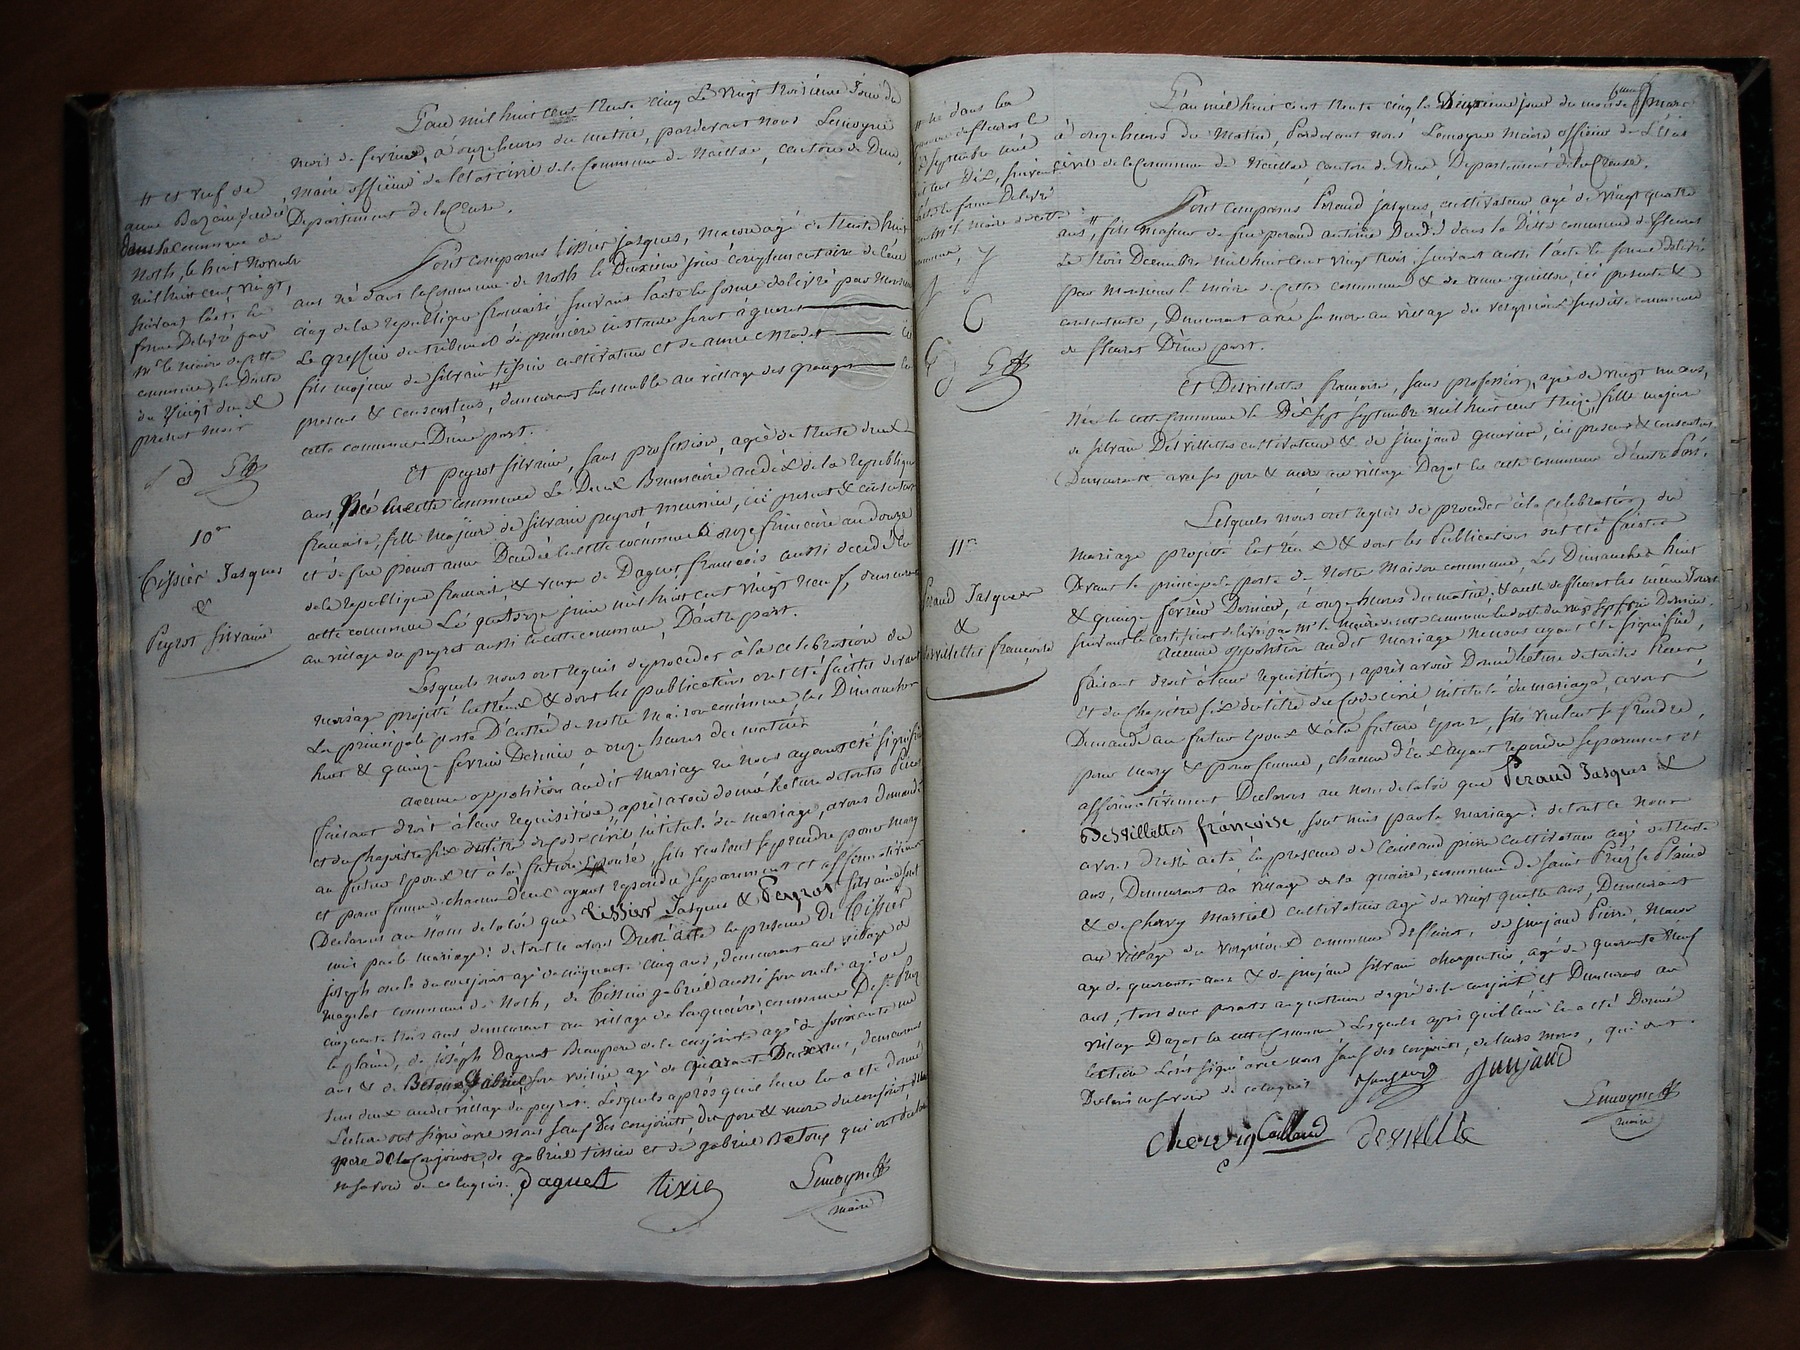 L'an mil huit cent trente cinq Le vingt troisieme Jour du
mois de fevrier, à onze heures du matin, pardevant nous Lemoyne
maire officier de l'état civil de la Commune de Noillac, canton de Dun,
Departement de la Creuse.
Sont comparus tissier jacques, macon agé de trente huit
ans né dans la Commune de Noth le Deuxieme jour complementaire de l'an
cinq de la republique francaise, suivant l'acte en forme delivré par Monsieur
Le greffier du tribunal de premiere instance seant à gueret
fils majeur de silvain tissier cultivateur et de anne
presens & consentens, demeurant ensemble au village des granges
cette commune D'une part.
Et peyrot silvaine, sans profession, agée de trente deux
ans, Née en cette commune Le Deux Brumaire an dix de la republique
francaise, fille majeure de silvain peyrot meunier, ici present & consentant
et de feue anne Decedée en cette commune le onze frimaire an douze
de la republique francaise, & veuve de Daguet francois aussi decedé en
cette commune Le quatorze juin mil huit cent vingt neuf, demeurant
au village du peyrot aussi en cette commune, D'autre part.
Lesquels nous ont requis de proceder à la celebration du
mariage projetté entr'eux & dont les publications ont été faites devant
La principale porte D'entrée de notre Maison commune, les Dimanches
huit & quinze fevrier Dernier à onze heures du matin
aucune opposition audit mariage ne nous ayant été signifiée
faisant droit à leur requisition, après avoir donné lecture de toutes pieces
et du Chapitre six du titre du Code civil intitulé du mariage, avons demandé
au futur epoux et à la future Epouse, s'ils veulent se prendre pour mary
et pour femme, chacun d'eux ayant repondu separement et affirmativement
Declarons au nom de la loi que Tissier Jacques & Peyrot silvaine sont
unis par le mariage: de tout ce avons Dressé acte en presence De Tissier
joseph oncle du conjoint agé de cinquante cinq ans, demeurant au village de
commune de Noth, de Tissier gabriel aussi son oncle agé de
cinquante trois ans demeurant au village de la quaire, commune De St. Priez
la plaine, de joseph Daguet Beaupere de la conjointe agé de soixante un
ans & de Betoux Gabriel, son voisin agé de quarante Deux ans, demeurant
tous deux audit village du peyrot. Lesquels après qu'il leur en a été donné
Lecture ont signé avec nous sauf Des conjoints, du pere & mere du conjoint, du
pere de la conjointe, de gabriel tissier et de gabriel Betoux qui ont declaré
ne savoir de ce laquis. Daguet tixier Lemoyne
maire
# et veuf de
anne decedée
dans la commune de
Noth, le huit Novembre
mil huit cent vingt,
suivant l'acte en
forme Delivré par
Mr le maire de cette
commune, en Date
du Vingt deux
present mois
10e
Tissier Jacques
&
Peyrot silvaine
6eme
L'an mil huit cent trente cinq le Deuxieme jour du mois de mars
à onze heures du Matin, Pardevant nous Lemoyne maire officier de L'état
civil de la Commune de Noillac, canton de Dun, Departement de la Creuse.
Sont comparus Peraud jacques, cultivateur agé de vingt quatre
ans, # fils majeur de feu peraud antoine Decedé dans la Ditte commune de fleurat
Le trois Decembre mil huit cent vingt trois, suivant aussi l'acte en forme delivré
par Monsieur le maire de cette commune & de anne guillon, ici presente &
consentente, Demeurant avec sa mere au village du vergnioux susditte commune
de fleurat D'une part.
Et Desvillettes francoise, sans profession, agée de vingt un ans,
Née en cette commune le Dix sept septembre mil huit cent treize, fille majeure
de silvain Desvillettes cultivateur & de jinjaud, ici presens & consentens
Demeurant avec ses pere & mere au village Dazat en cette commune d'autre Part.
Lesquels nous ont requis de proceder à la celebration du
mariage projetté Entr'eux & dont les Publications ont été faites
Devant la principale porte de Notre Maison commune, Les Dimanches huit
& quinze fevrier Dernier, à onze heures du matin, & à celle de fleurat les mêmes Jours
suivant le certificat delivré par Mr le Maire de cette commune en date du vingt sept fevrier Dernier.
Aucune opposition audit Mariage ne nous ayant été signifiée,
faisant droit à leur requisition, après avoir Donné lecture de toutes Pieces
Et du Chapitre six du titre du Code civil intitulé du mariage, avons
Demandé au futur epoux & à la future Epouse, s'ils veulent se prendre,
pour mary & pour femme, chacun d'eux ayant repondu separement et
affirmativement Declarons au nom de la loi que Peraud Jacques &
Desvillettes francoise, sont unis par le mariage: de tout ce nous
avons dressé acte en presence de Caillaud pierre cultivateur agé de trente
ans, Demeurant au village de la quaire, commune de saint Priez la Plaine
& de Chervy Martial cultivateur agé de vingt quatre ans, Demeurant
au village du vergnioux commune de fleurat, de jinjaud Pierre, Macon
agé de quarante ans & de jinjaud silvain charpentier, agé de quarante Neuf
ans, tous deux parents au quatrieme degré de la conjointe et Demeurans au
village Dazat en cette commune Lesquels après qu'il leur en a été Donné
Lecture L'ont signé avec nous sauf des conjoints, de leurs meres, qui ont
Declaré ne savoir de ce laquis. jinjaud
Lemoyne
maire
chervy Caillaud desville
# né dans la
commune de fleurat le
11e
Peraud Jacques
&
Desvillettes francoise